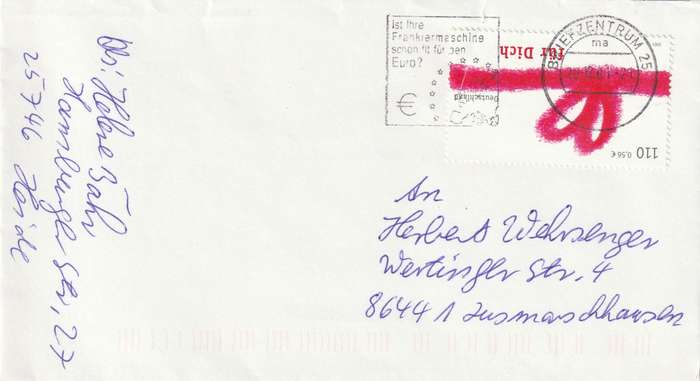 Ist Ihre
Frankiermaschine
schon fit für den
Euro?
€
BRIEFZENTRUM 25
ma
für Dich
Deutschland
110 0,56 €
An
Herbert Wehrsenger
Wertinger Str. 4
86441 Zusmarshhausen
Helene Bähr
Hamburger Str. 27
25746 Heide